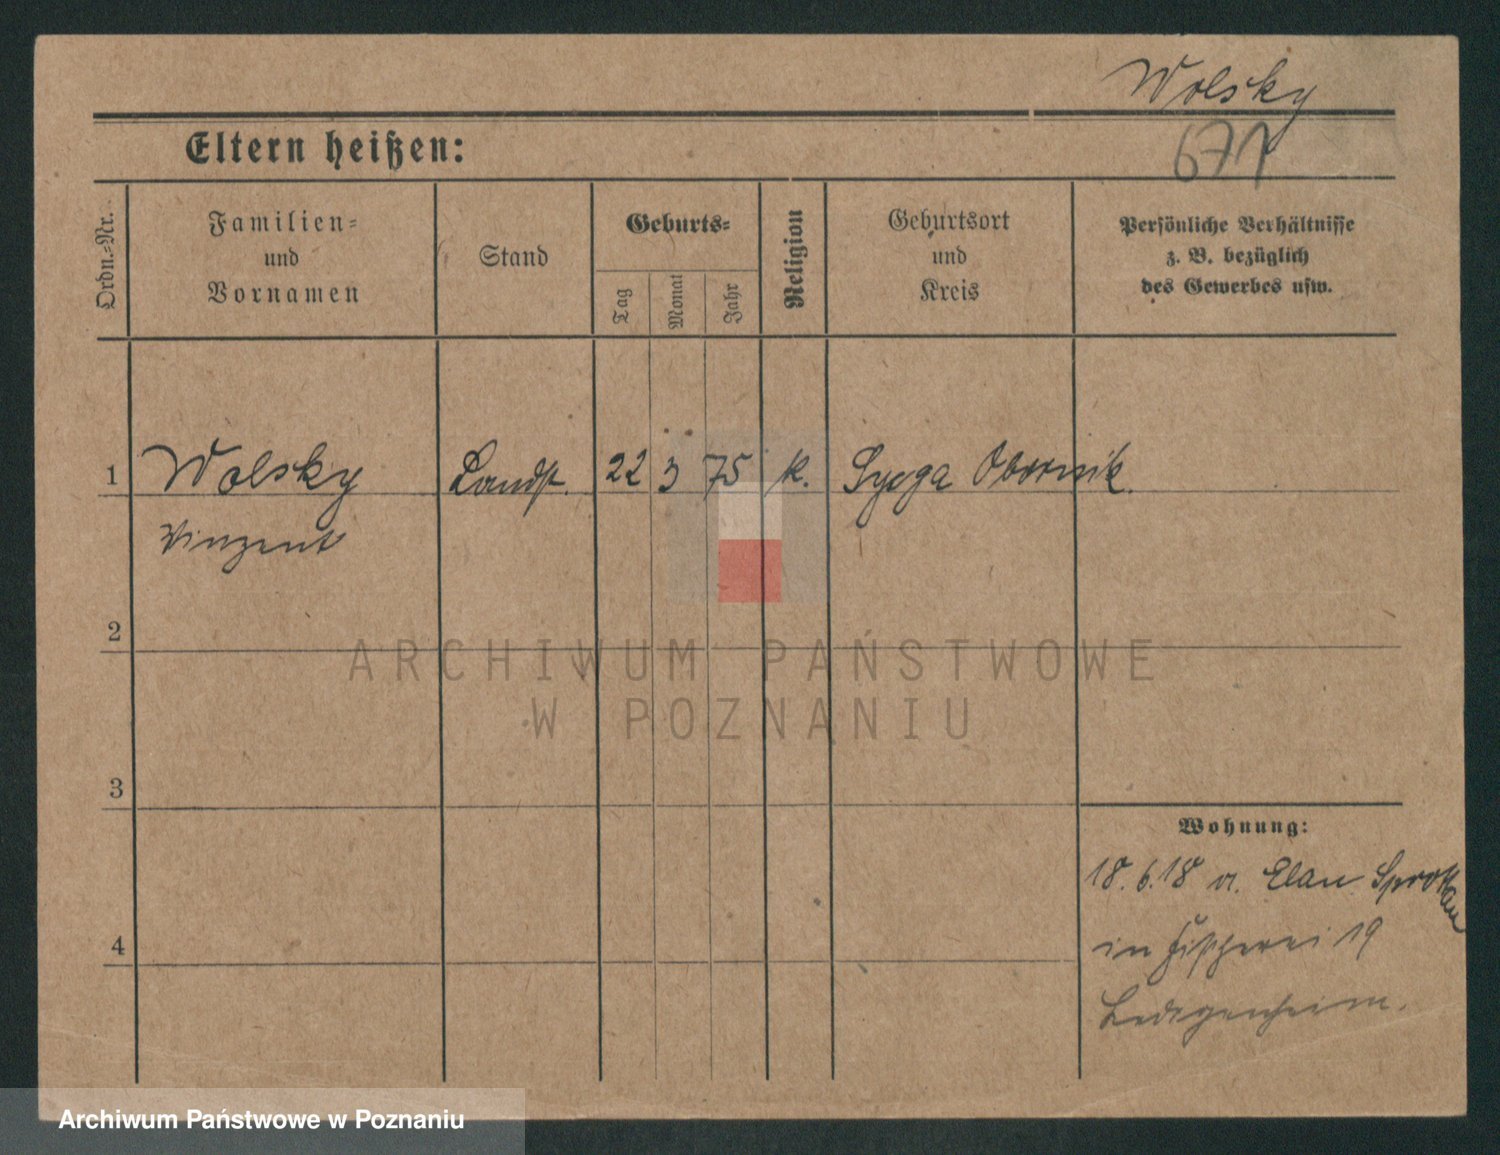 Wolsky
671
Eltern heißen:
Ordn.-Nr.
Familien=
und
Vornamen
Stand
Geburts=
Tag
Monat
Jahr
Religion
Geburtsort
und
Kreis
Persönliche Verhältnisse
z. B. bezüglich
des Gewerbes usw.
1 Wolsky Landst. 22 3 75 k. Obornik.
Vinzent
2
3
4
Wohnung:
18.6.18 a. Sprottau
in Fischerei 19
Ledigenheim.
ARCHIWUM PAŃSTWOWE
W POZNANIU
Archiwum Państwowe w Poznaniu